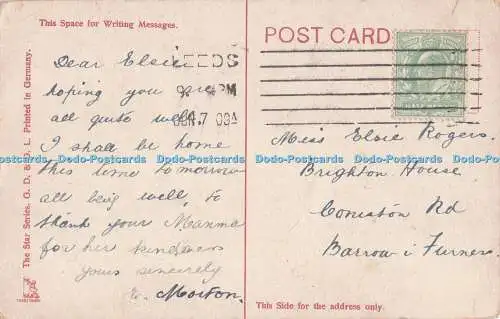 This Space for Writing Messages.
POST CARD
The Star Series. G. D. & D., L. Printed in Germany.
LEEDS
PM
7 09
Dear Elsie
hoping you are
all quite well
I shall be home
this time tomorrow
all being well, to
thank your Mamma
for her kindness
Yours sincerely
Morton.
Miss Elsie Rogers.
Brighton House
Coniston Rd
Barrow i Furness
This Side for the address only.
Dodo-Postcards Dodo-Postcards Dodo-Postcards Dodo-Postcards Dodo-Postcards